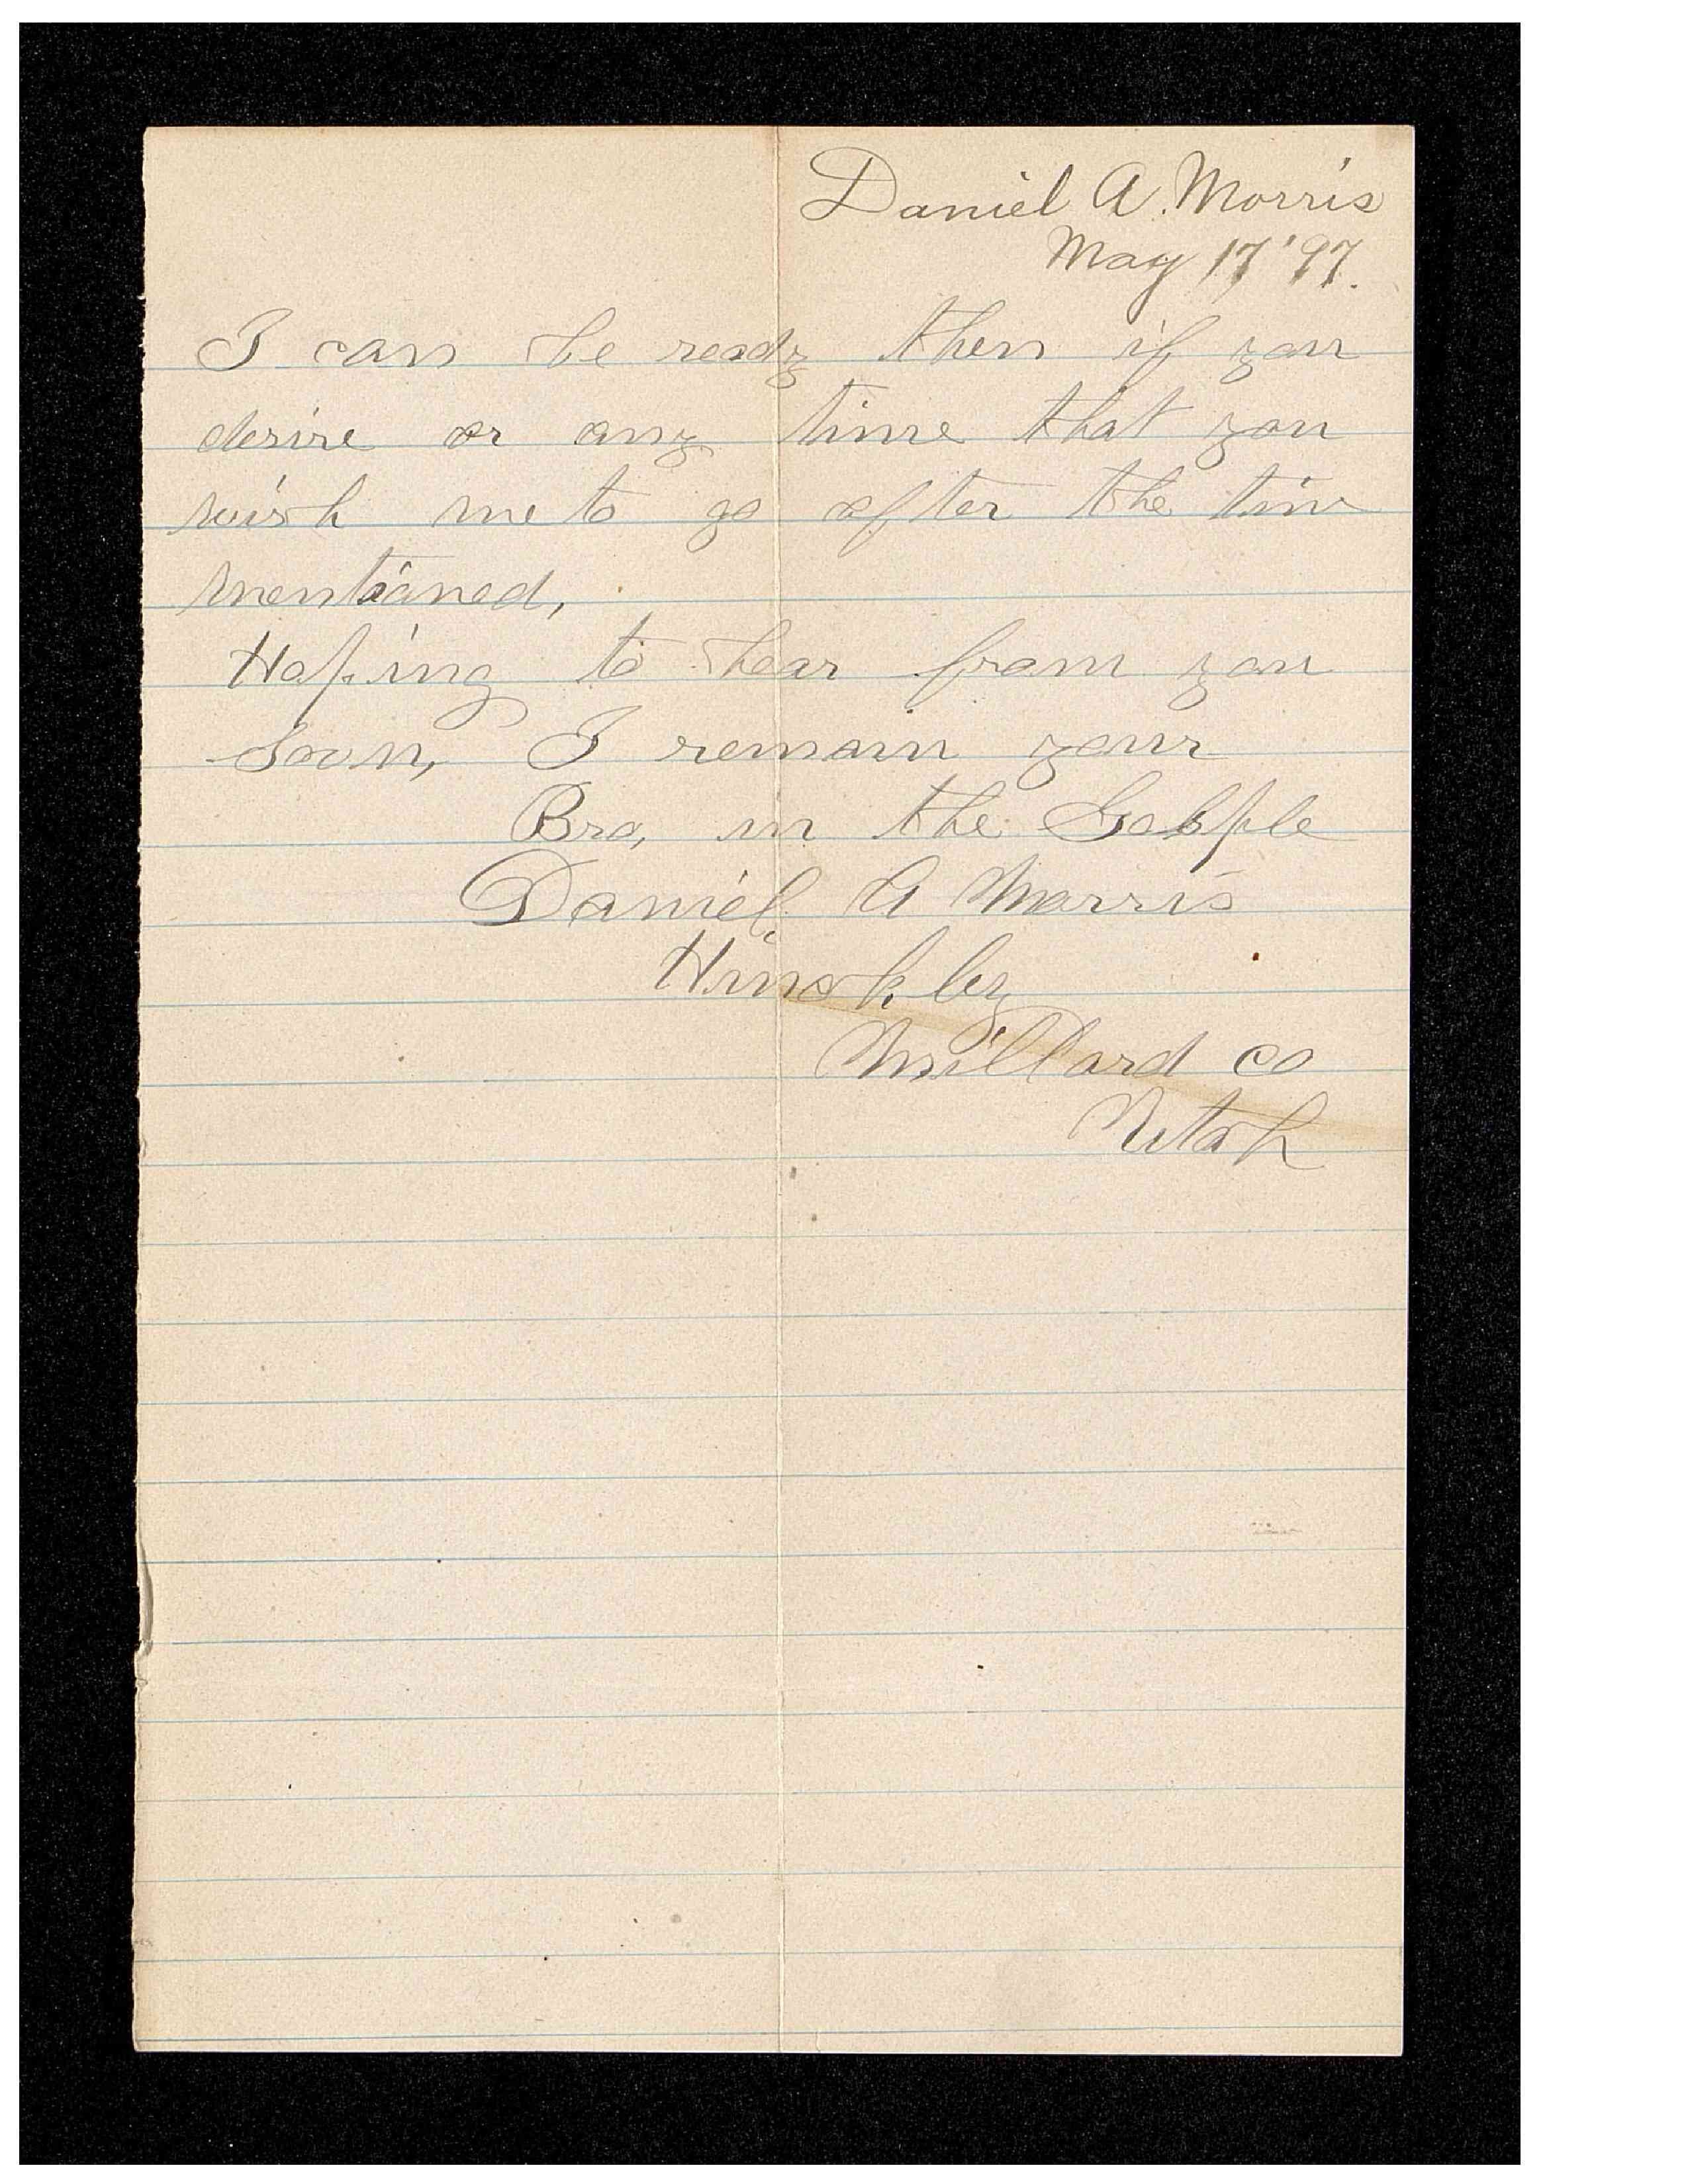 Daniel A. Morris
May 17 '97.
I can be ready then if you
desire or any time that you
wish me to go after the time
mentioned,
Hoping to hear from you
soon, I remain your
Bro, in the Gosple
Daniel A Morris
Hinckley
Millard co
Utah